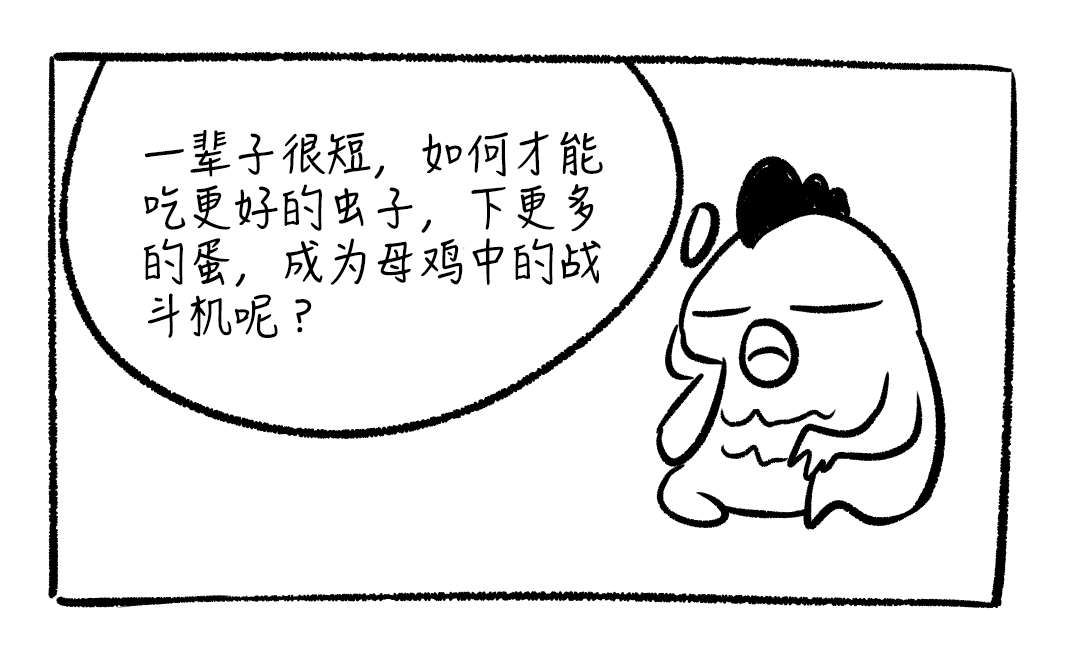 一辈子很短，如何才能
吃更好的虫子，下更多
的蛋，成为母鸡中的战
斗机呢？